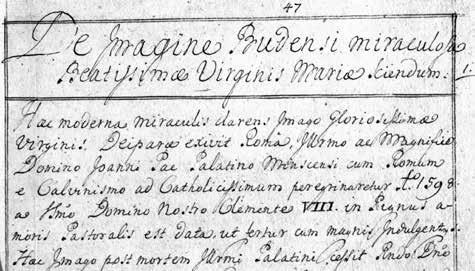 47
De Imagine Budensi miraculosa
Beatissimæ Virginis Mariæ Sciendum: 1.
Hæc moderna miraculis clarens Imago Gloriosissimæ
Virginis Deiparæ exivit Roma, Illrmo ac Magnifico
Domino Joanni Pac Palatino Menscensi cum Romam
e Calvinismo ad Catholicissimum peregrinaretur A. 1598.
a Ssmo Domino Nostro Clemente VIII. in Pignus a-
moris Pastoralis est data, ut fertur cum magnis Indulgentys.
Hæc Imago post mortem Illrmi Palatini cessit Rndo Dno